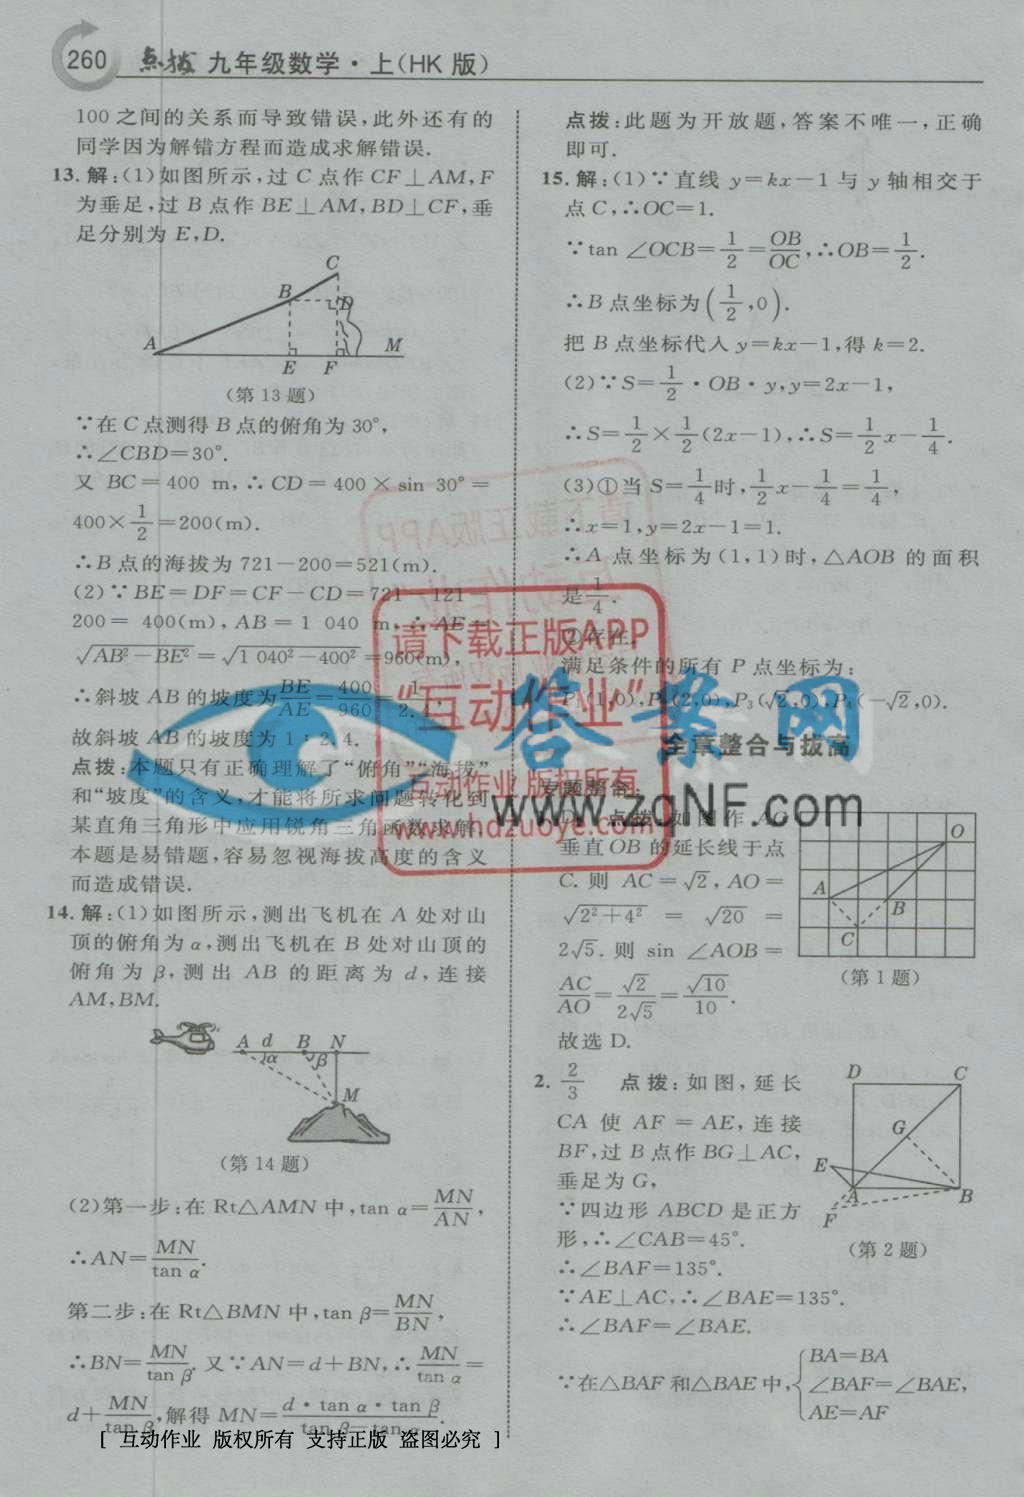 260 点拨 九年级数学·上(HK版)
100 之间的关系而导致错误,此外还有的
同学因为解错方程而造成求解错误.
13. 解:(1)如图所示,过 C 点作 CF⊥AM,F
为垂足,过 B 点作 BE⊥AM,BD⊥CF,垂
足分别为 E,D.
C
B
D
A
M
E F
(第 13 题)
∵在 C 点测得 B 点的俯角为 30°,
∴∠CBD=30°.
又 BC=400 m,∴CD=400×sin 30°=
400×1/2=200(m).
∴B 点的海拔为 721-200=521(m).
(2)∵BE=DF=CF-CD=721-121=
200= 400(m),AB=1 040 m,∴AE=
√AB²-BE²=√1 040²-400²=960(m),
∴斜坡 AB 的坡度为 BE/AE=400/960=1/2.4.
故斜坡 AB 的坡度为 1:2.4.
点拨:本题只有正确理解了“俯角”“海拔”
和“坡度”的含义,才能将所求问题转化到
某直角三角形中应用锐角三角函数求解.
本题是易错题,容易忽视海拔高度的含义
而造成错误.
14. 解:(1)如图所示,测出飞机在 A 处对山
顶的俯角为 α,测出飞机在 B 处对山顶的
俯角为 β,测出 AB 的距离为 d,连接
AM,BM.
A d B N
α β
M
(第 14 题)
(2)第一步:在 Rt△AMN 中,tan α=MN/AN,
∴AN=MN/tan α.
第二步:在 Rt△BMN 中,tan β=MN/BN,
∴BN=MN/tan β.又∵AN=d+BN,∴MN/tan α=
d+MN/tan β,解得 MN=d·tan α·tan β/tan β-tan α.
点拨:此题为开放题,答案不唯一,正确
即可.
15. 解:(1)∵直线 y=kx-1 与 y 轴相交于
点 C,∴OC=1.
∵tan ∠OCB=1/2=OB/OC,∴OB=1/2.
∴B 点坐标为(1/2,0).
把 B 点坐标代入 y=kx-1,得 k=2.
(2)∵S=1/2·OB·y,y=2x-1,
∴S=1/2×1/2(2x-1),∴S=1/2x-1/4.
(3)①当 S=1/4时,1/2x-1/4=1/4,
∴x=1,y=2x-1=1.
∴A 点坐标为(1,1)时,△AOB 的面积
是1/4.
②存在.
满足条件的所有 P 点坐标为:
P₁(1,0),P₂(2,0),P₃(√2,0),P₄(-√2,0).
全章整合与拔高
专题整合:
点拨:如图,作 AC
垂直OB 的延长线于点
C. 则 AC=√2,AO=
√2²+4² = √20 =
2√5. 则 sin ∠AOB=
AC/AO=√2/2√5=√10/10.
故选 D.
O
A
B
C
(第 1 题)
2. 2/3 点拨:如图,延长
CA 使 AF=AE,连接
BF,过 B 点作 BG⊥AC,
垂足为 G,
∵四边形 ABCD 是正方
形,∴∠CAB=45°.
∴∠BAF=135°.
∵AE⊥AC,∴∠BAE=135°.
∴∠BAF=∠BAE.
∵在△BAF 和△BAE 中,{BA=BA
∠BAF=∠BAE,
AE=AF
D C
G
E
A B
F
(第 2 题)
请下载正版APP
“互动作业”
互动作业 版权所有
www.hdzuoye.com
答案网
www.zqNF.com
[ 互动作业 版权所有 支持正版 盗图必究 ]